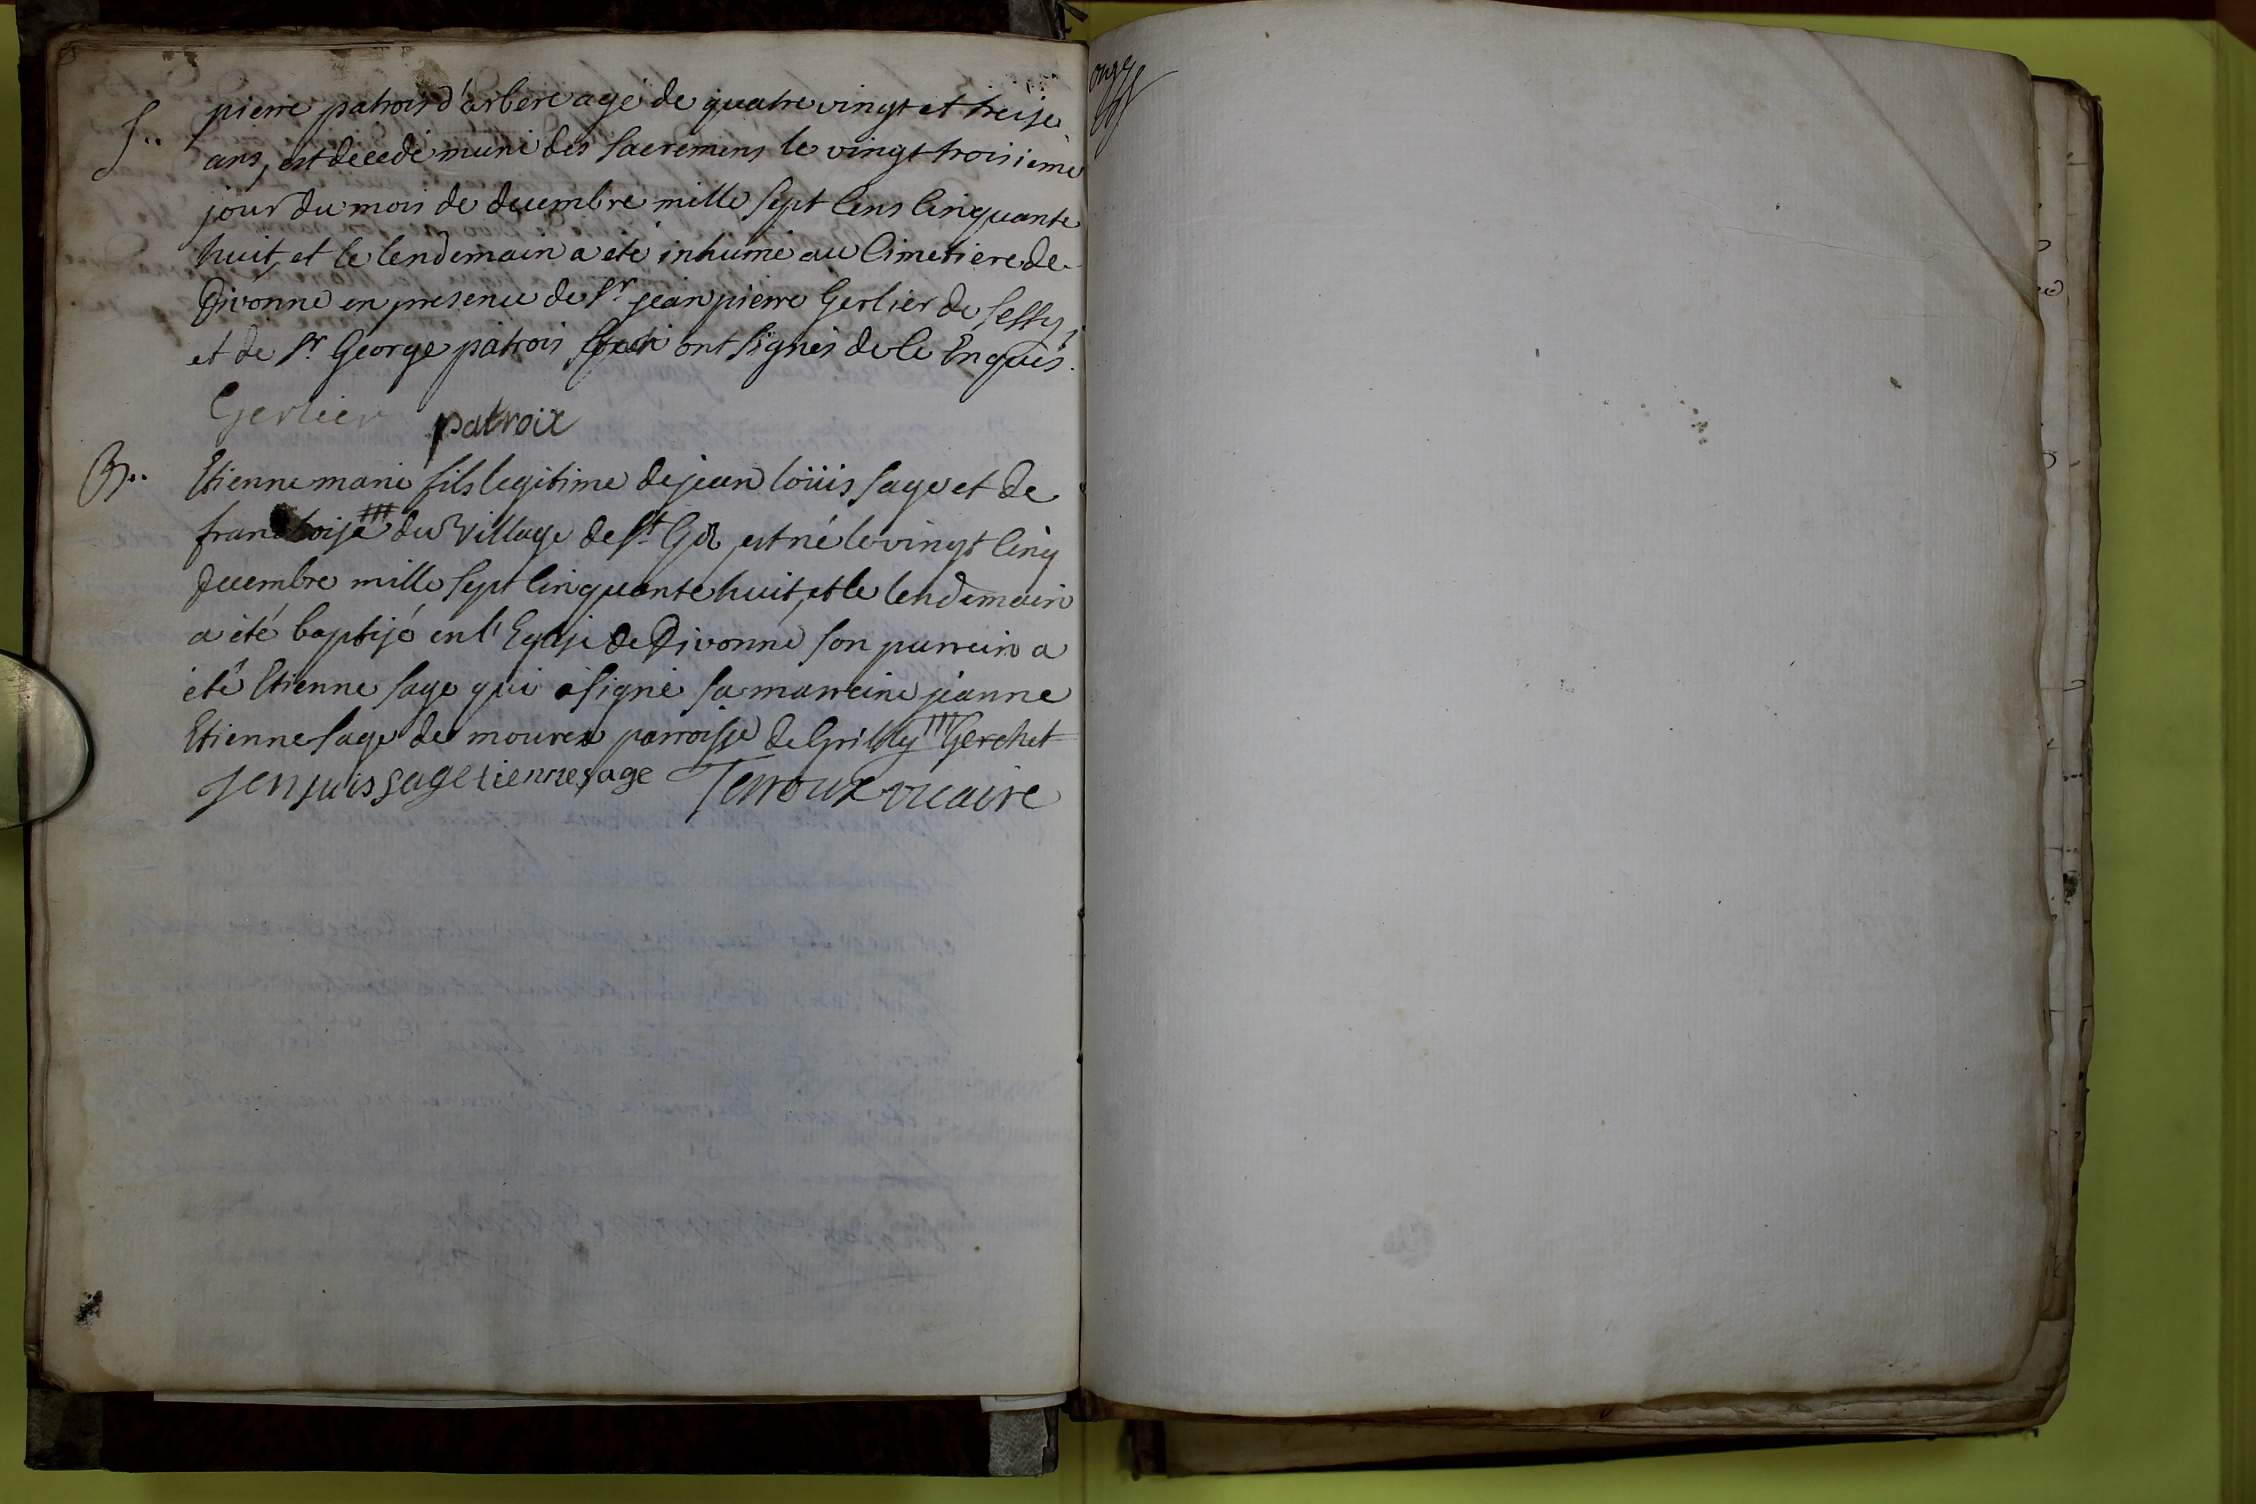 S..
pierre patrois d'arbere agé de quatre vingt et treise
ans, est decedé muni des sacremens le vingt troisieme
jour du mois de decembre mille sept cens cinquante
huit, et le lendemain a eté inhumé au cimetiere de
Divonne en presence de Sr jean pierre Gerlier de Sessy,
et de Sr George patrois ont signés de ce Enquis.
Gerlier patroix
B..
Etienne marie fils legitime de jean loüis sage et de
francoise ### du village de St Gix est né le vingt cinq
decembre mille sept cinquante huit, et le lendemain
a été baptisé en l'Eglise de Divonne son parrein a
eté Etienne sage qui a signé sa marreine jeanne
Etienne sage de mourex parroisse de Grilly ''' Gerchet
jen luis sage etienne sage Terroux vicaire
onze